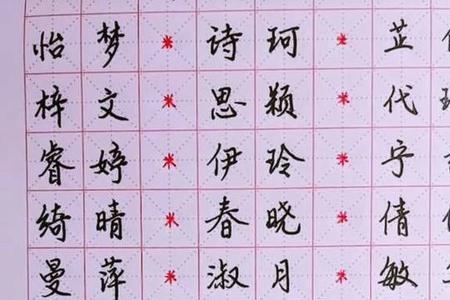 怡梦 * 诗珂 * 芷
梓文 * 思颖 * 代
睿婷 * 伊玲 * 宁
绮晴 * 春晓 * 倩
曼萍 * 淑月 * 敏